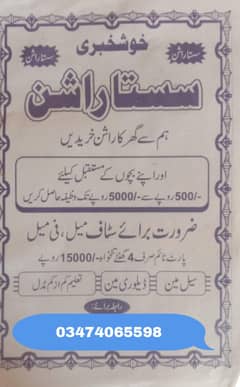 خوشخبری
سستا راشن
سستا راشن
سستا راشن
ہم سے گھر کا راشن خریدیں
اور اپنے بچوں کے مستقبل کیلئے
500/- روپے سے -/5000 روپے تک وظیفہ حاصل کریں
ضرورت برائے سٹاف میل، فی میل
پارٹ ٹائم صرف 4 گھنٹے تنخواہ -/15000 روپے
سیل مین
ڈیلوری مین
تعلیم کم از کم مڈل
رابطہ برائے:
03474065598